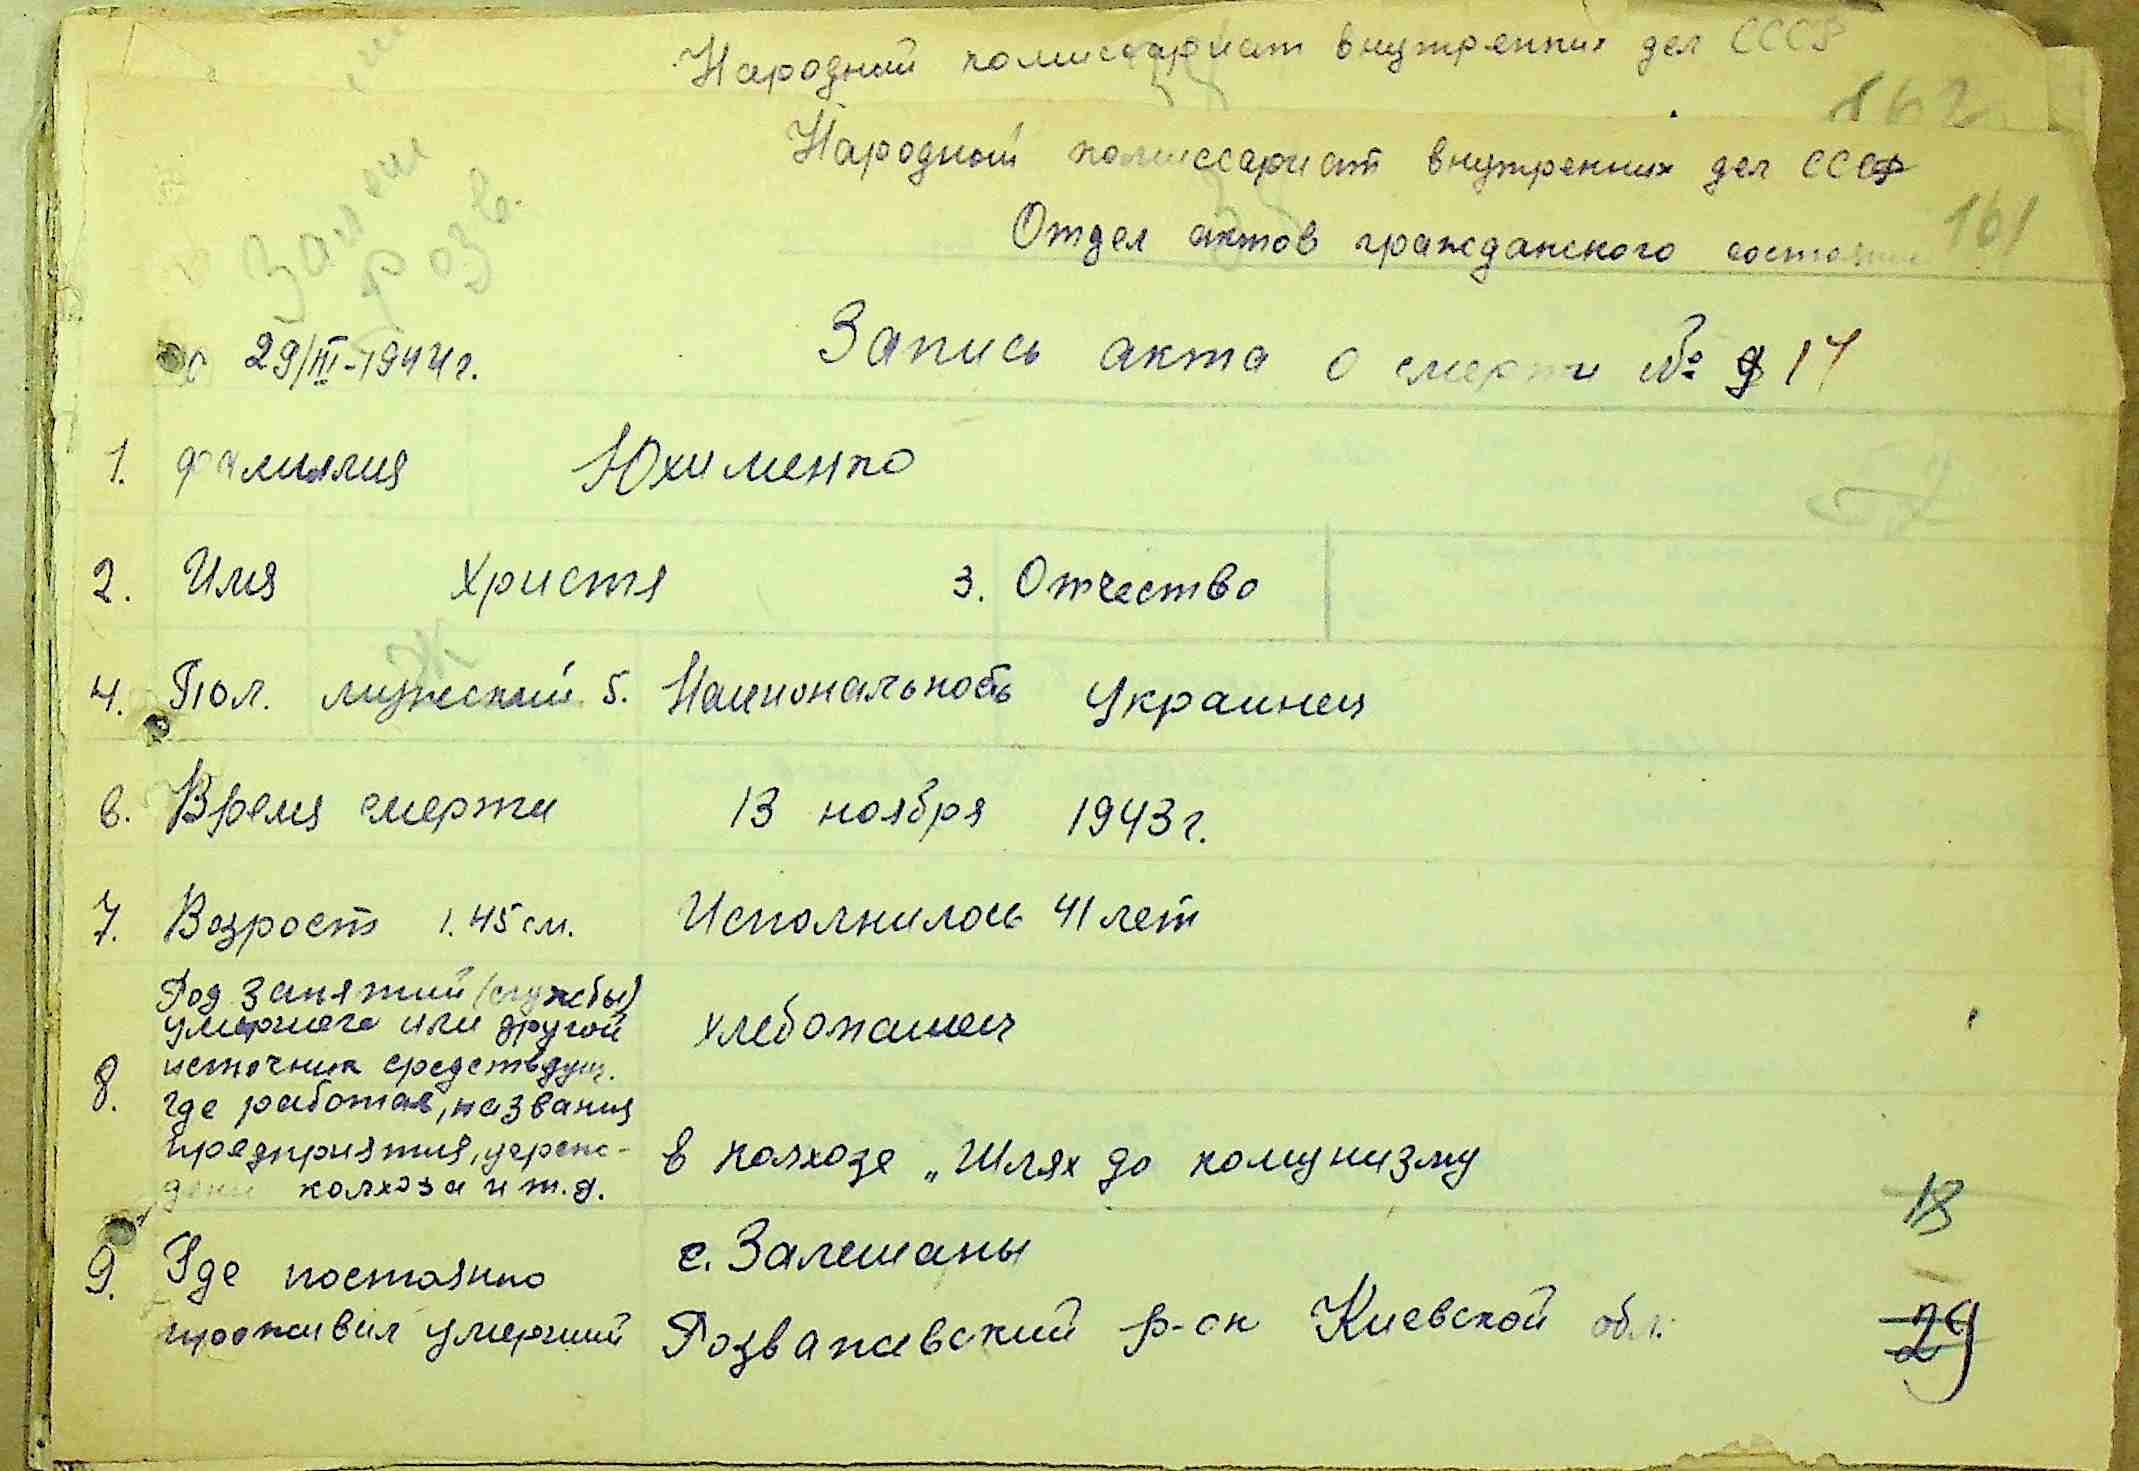 Народний комиссариат внутренних дел СССР
162
Народный комиссариат внутренних дел СССР
Отдел актов гражданского состояни
161
Залеш
Розв.
29/III-1944г.
Запись акта о смерти № 17
1. фамилия Юхименко
2. Имя Христя 3. Отчество
Ж
4. Пол. мужский 5. Национальность Украинец
6. Время смерти 13 ноября 1943г.
7. Возрост 1.45 см. Исполнилось 41 лет
Род занятий (службы)
умершего или другой хлебопашец
источник средствдущ.
8. где работав, названия
предприятия, учреж-
дени колхоза и т.д. в колхозе „Шлях до комунизму
18
9. Где постоянно с. Залешаны
проживал умерший Розважевский р-он Киевской обл.
29